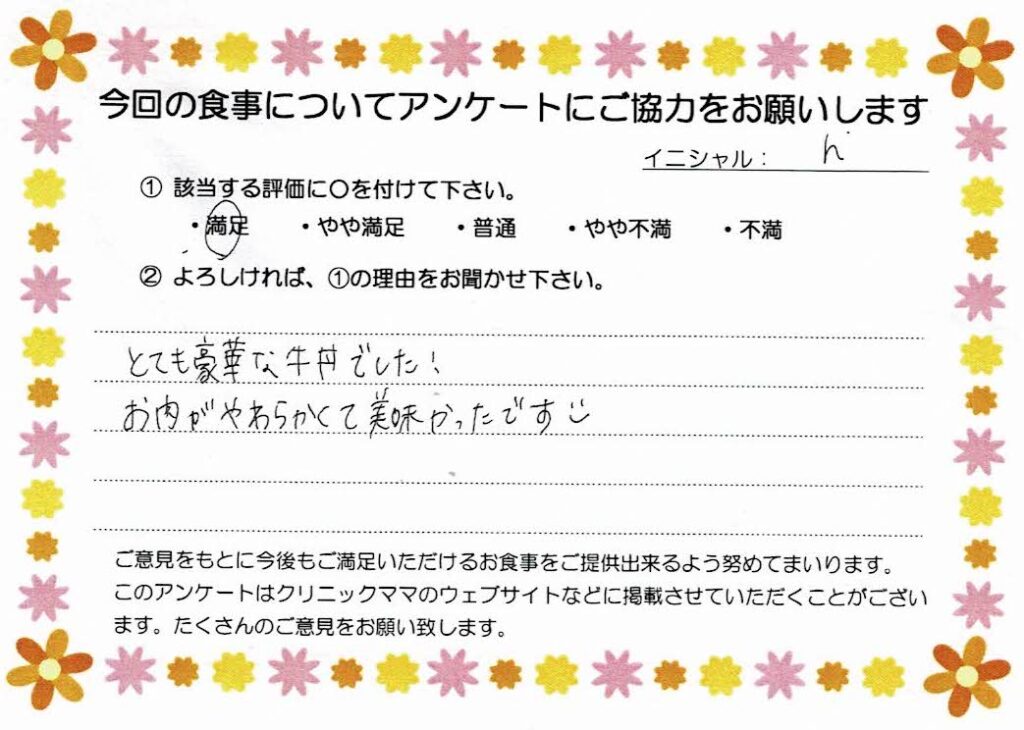 今回の食事についてアンケートにご協力をお願いします
イニシャル： h
① 該当する評価に〇を付けて下さい。
・満足 ・やや満足 ・普通 ・やや不満 ・不満
② よろしければ、①の理由をお聞かせ下さい。
とても豪華な牛丼でした!
お肉がやわらかくて美味かったです
ご意見をもとに今後もご満足いただけるお食事をご提供出来るよう努めてまいります。
このアンケートはクリニックママのウェブサイトなどに掲載させていただくことがござい
ます。たくさんのご意見をお願い致します。